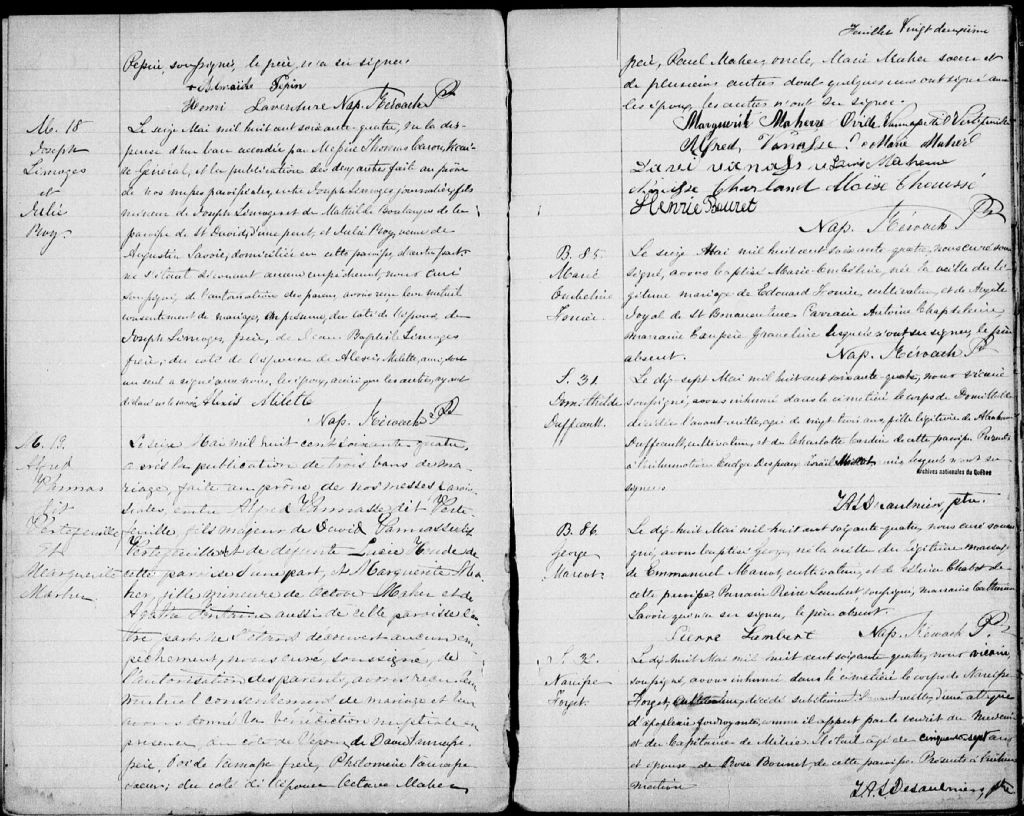 Pepin, soussigné, le père, n'a su signer.
+ Adelaïde Pepin
Henri Laverdure Nap. Kéroack Ptr
M. 18
Joseph
Limoges
et
Julie
Roy.
Le seize Mai mil huit cent soixante quatre, vu la dis-
pense d'un ban accordée par Messire Thomas Caron, Vicai-
re Général, et la publication des deux autres faite au prône
de nos messes paroissiales, entre Joseph Limoges journalier, fils
mineur de Joseph Limoges et de Mathilde Boulanger de la
paroisse de St David, d'une part, et Julie Roy, veuve de
Augustin Savoie, domiciliée en cette paroisse, d'autre part;
ne s'étant découvert aucun empêchement, nous curé
soussigné, de l'autorisation des parens, avons reçu leur mutuel
consentement de mariage, en présence, du coté de l'époux, de
Joseph Limoges, frère, de Jean Baptiste Limoges
frère; du coté de l'épouse de Alexis Milette, ami, dont
un seul a signé avec nous, les époux, ainsi que les autres, ayant
déclaré ne le savoir Alexis Milette
Nap. Kéroack Ptr
M. 19.
Alfred
Vannas
dit
Vertefeuille
Et
Marguerite
Maher
Le seize Mai mil huit cent soixante quatre,
après la publication de trois bans de ma-
riage, faite au prône de nos messes parois-
siales, entre Alfred Vannasse dit Verte-
feuille, fils majeur de David Vannasse dit
Vertefeuille et de défunte Lucie Houde de
cette paroisse d'une part, et Marguerite Ma-
her, fille mineure de Octave Maher et de
Agathe Fontaine aussi de cette paroisse d'au-
tre part. ne s'étant découvert aucun em-
pêchement, nous curé, soussigné, de
l'autorisation des parents, avons reçu leur
mutuel consentement de mariage et leur
avons donné la bénédiction nuptiale en
présence, du coté de l'époux, de David Vanasse
père, Ovide Vanasse frère, Philomène Vanasse
soeur; du coté de l'épouse Octave Maher
Feuillet Vingt deuxième
père, Paul Maher, oncle, Marie Maher soeur et
de plusieurs autres dont quelques uns ont signé avec
les époux, les autres n'ont su signer.
Marguerite Maherre Ovide Vannasse dit Vertefeuille
Alfred Vanasse Marie Maheré
David vanass Louis Maheux
Charland Moïse Choussé
Henrie Bouret
Nap. Kéroack Ptr
B. 85.
Marie
Emheline
Houie.
Le seize Mai mil huit cent soixante quatre, nous curé sous-
signé, avons baptisé Marie Emhéline, née la veille du lé-
gitime mariage de Edouard Houie, cultivateur, et de Angèle
Joyal de St Bonaventure. Parrain Antoine Chapdelaine,
marraine Exupère Graveline lesquels n'ont su signer, le père
absent. Nap. Kéroack Ptr
S. 31.
Domithilde
Duffault.
Le dix-sept Mai mil huit cent soixante quatre, nous vicaire
soussigné, avons inhumé dans le cimetière le corps de Domithilde
décédée l'avant veille, agée de vingt trois ans, fille légitime de Abraham
Duffault, cultivateur, et de Charlotte Cardin de cette paroisse. Présents
à l'inhumation Eudge Despeaux, Israël lesquels n'ont su
signer.
Archives nationales du Québec
J.A.L. Desaulniers, ptre.
B. 86.
George
Marcot.
Le dix-huit Mai mil huit cent soixante quatre, nous curé sous-
signé, avons baptisé George, né la veille du légitime mariage
de Emmanuel Marcot, cultivateur, et de Chabot de
cette paroisse. Parrain Pierre Lambert soussigné, marraine Catherine
Savoie qui n'a su signer, le père absent.
Pierre Lambert Nap. Kéroack Ptr
S. 32.
Narcisse
Forget.
Le dix-huit Mai mil huit cent soixante quatre, nous vicaire
soussigné, avons inhumé dans le cimetière le corps de Narcisse
Forget, décédé subitement l'avant veille, d'une attaque
d'apoplexie foudroyante, comme il appert par le certificat du Médecin
et du Capitaine de Milice. Il était agé de cinquante sept ans
et époux de Bonnet de cette paroisse. Présents à l'inhu-
mation
J.A.L. Desaulniers, ptre